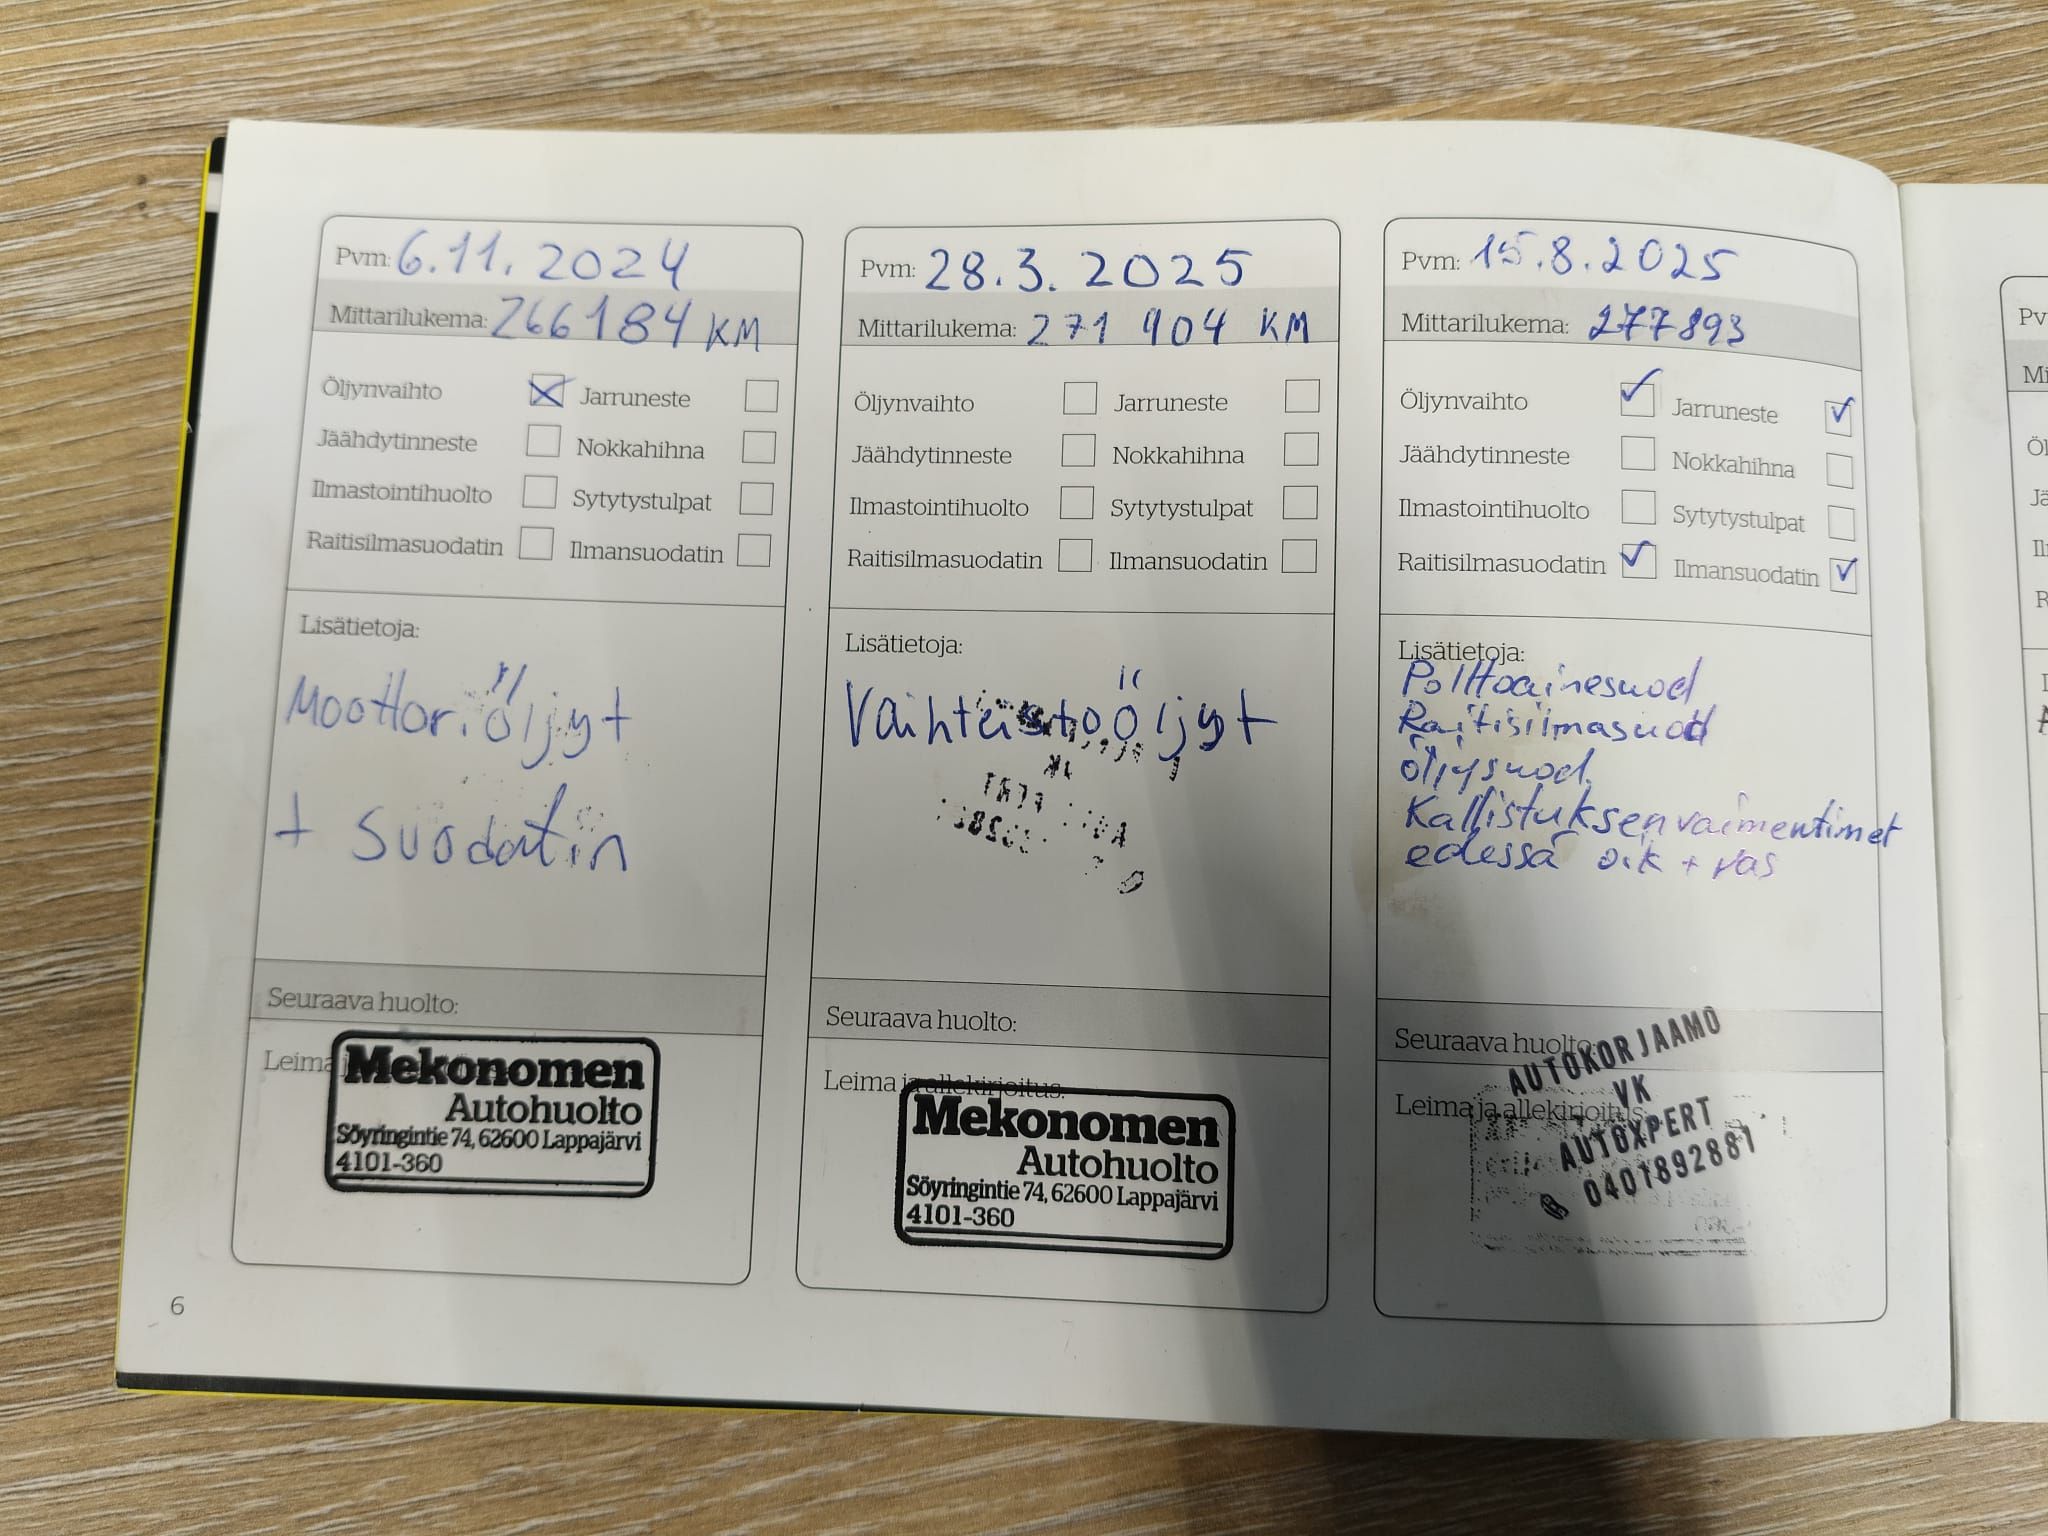 Pvm: 6.11.2024
Mittarilukema: 266184 KM
Öljynvaihto Jarruneste
Jäähdytinneste Nokkahihna
Ilmastointihuolto Sytytystulpat
Raitisilmasuodatin Ilmansuodatin
Lisätietoja:
Moottoriöljyt
+ suodatin
Seuraava huolto:
Leima
Mekonomen
Autohuolto
Söyringintie 74, 62600 Lappajärvi
4101-360
6
Pvm: 28.3.2025
Mittarilukema: 271 904 KM
Öljynvaihto Jarruneste
Jäähdytinneste Nokkahihna
Ilmastointihuolto Sytytystulpat
Raitisilmasuodatin Ilmansuodatin
Lisätietoja:
Vaihteistoöljyt
Seuraava huolto:
Leima ja allekirjoitus:
Mekonomen
Autohuolto
Söyringintie 74, 62600 Lappajärvi
4101-360
Pvm: 15.8.2025
Mittarilukema: 277893
Öljynvaihto Jarruneste
Jäähdytinneste Nokkahihna
Ilmastointihuolto Sytytystulpat
Raitisilmasuodatin Ilmansuodatin
Lisätietoja:
Polttoainesuod
Raitisilmasuod
öljysuod.
Kallistuksenvaimentimet
edessä oik + vas
Seuraava huolto:
Leima ja allekirjoitus:
AUTOKORJAAMO
VK
AUTOXPERT
0401892881
Pv
Mi